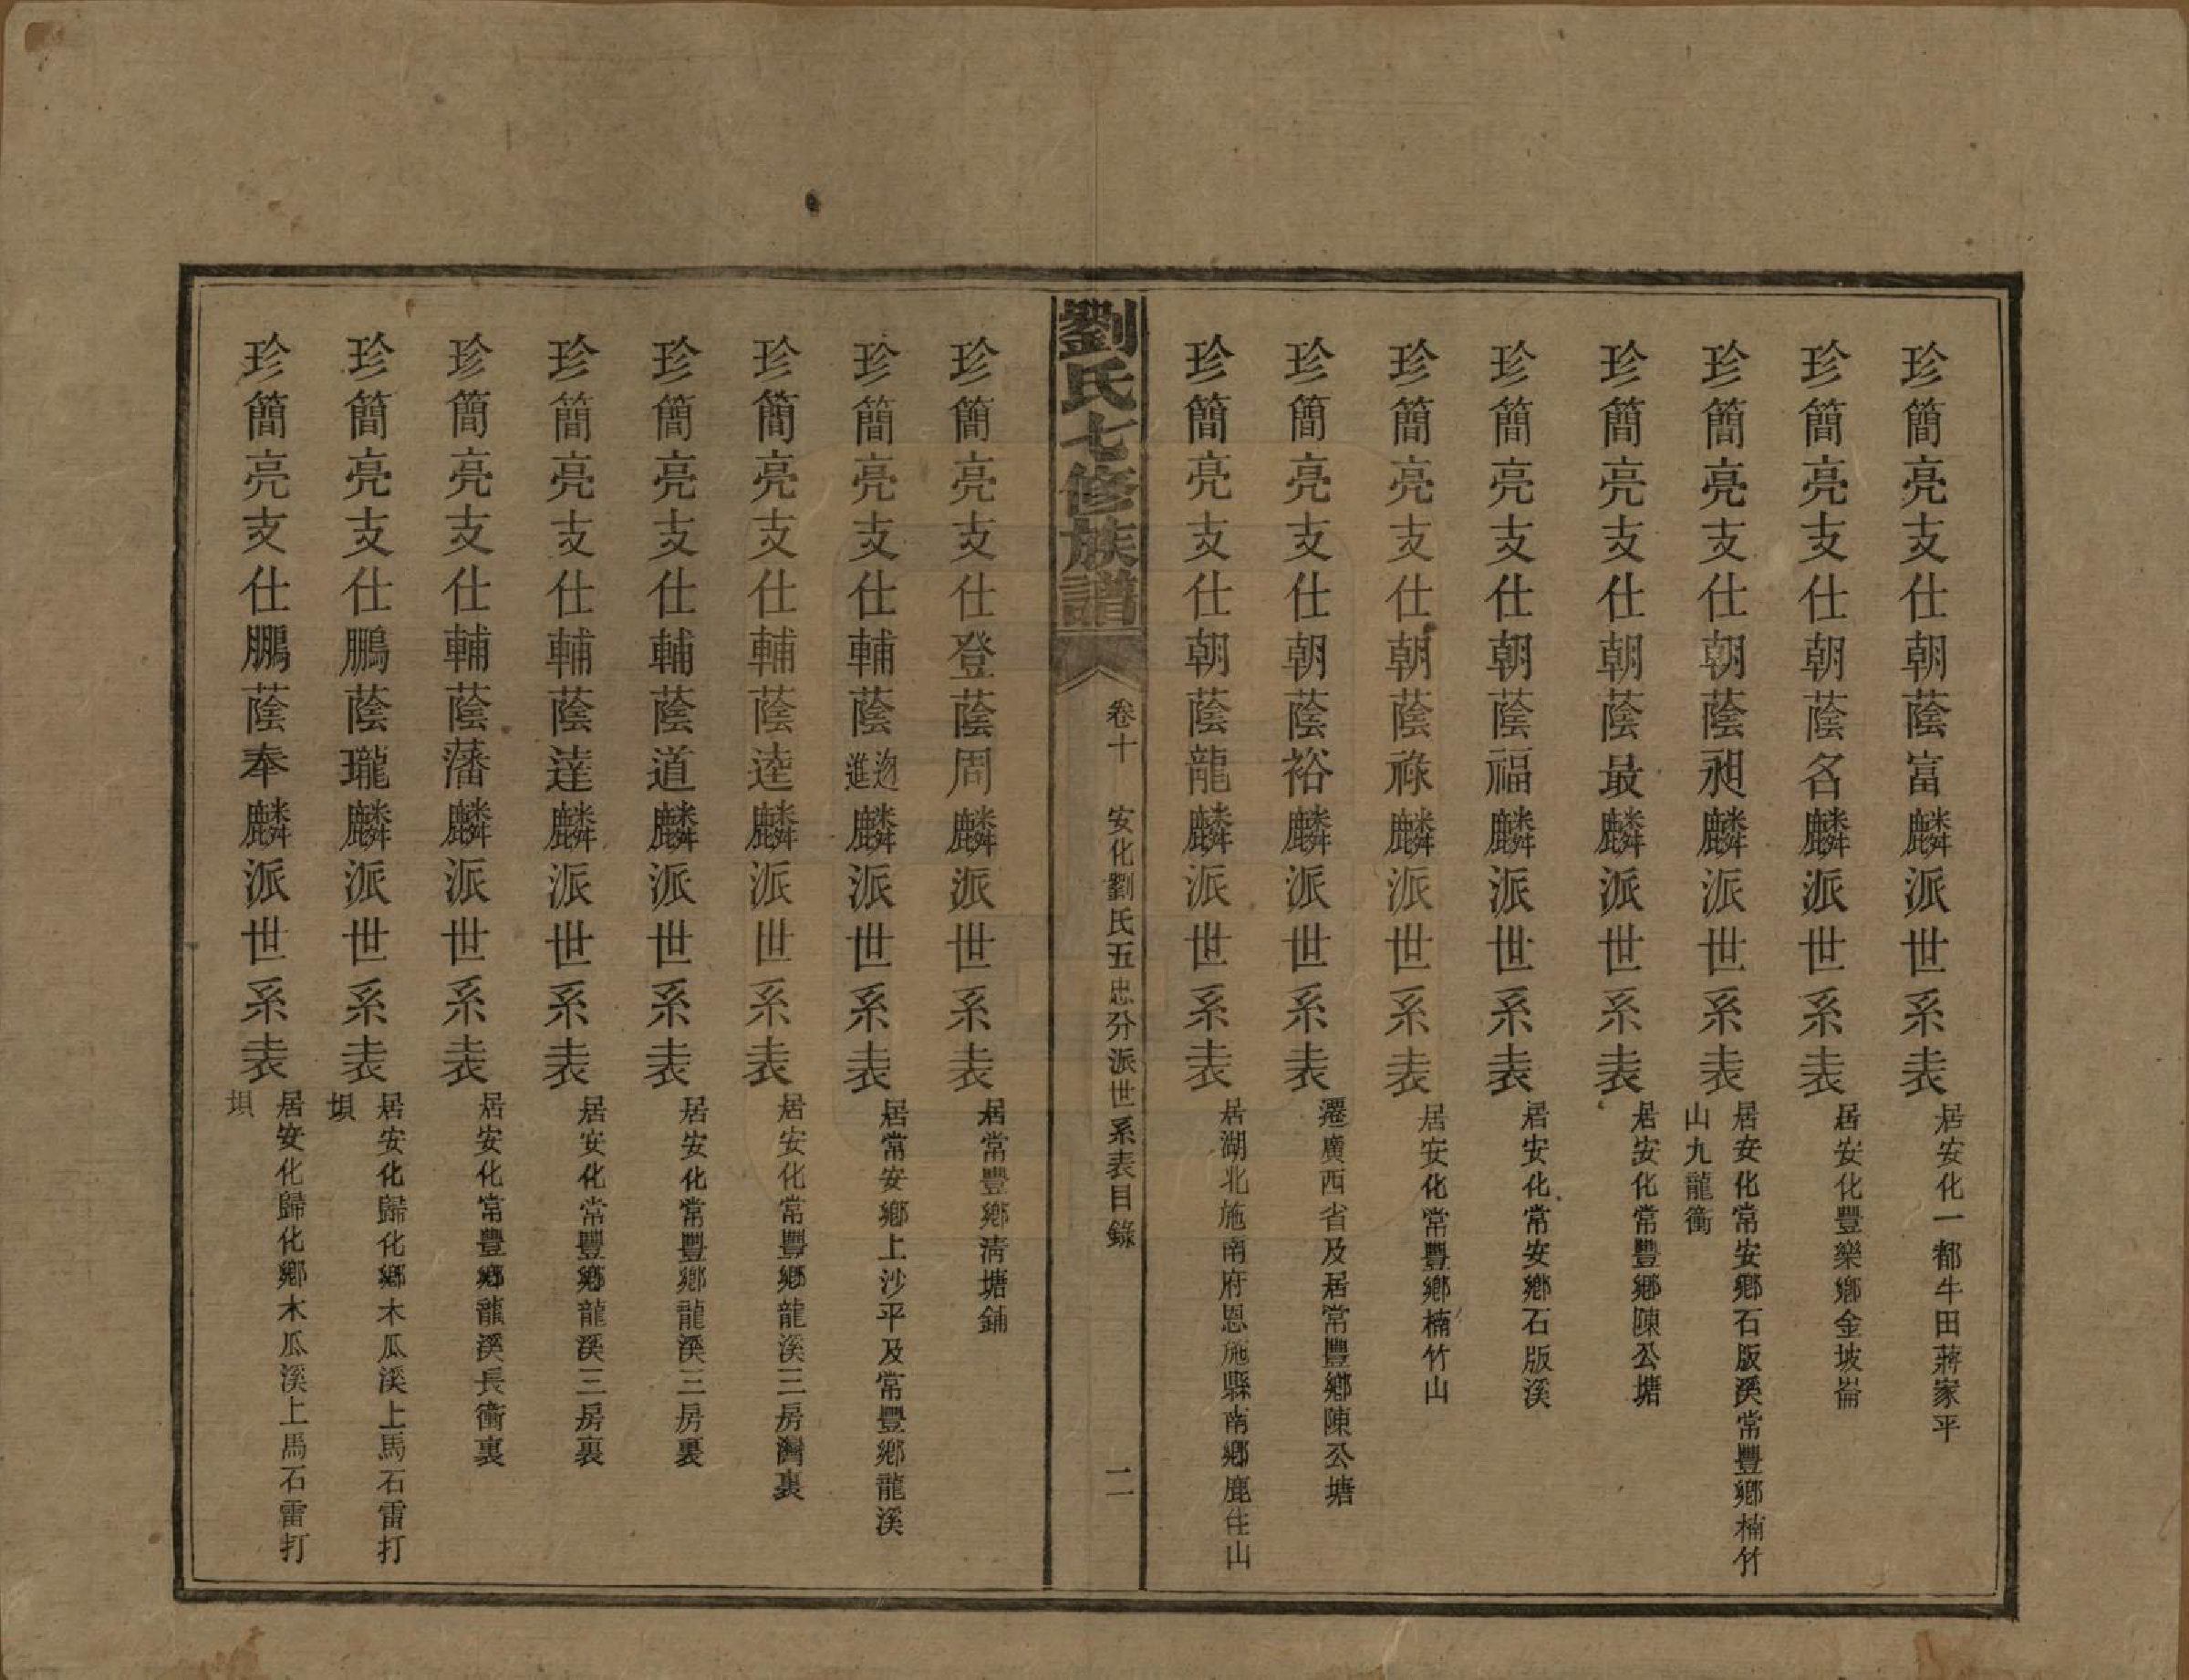 珍簡亮支仕朝蔭富麟派世系表 居安化一都牛田蔣家平
珍簡亮支仕朝蔭名麟派世系表 居安化豐樂鄉金坡崙
珍簡亮支仕朝蔭昶麟派世系表 居安化常安鄉石版溪常豐鄉楠竹
山九龍衝
珍簡亮支仕朝蔭最麟派世系表 居安化常豐鄉陳公塘
珍簡亮支仕朝蔭福麟派世系表 居安化常安鄉石版溪
珍簡亮支仕朝蔭祿麟派世系表 居安化常豐鄉楠竹山
珍簡亮支仕朝蔭裕麟派世系表 遷廣西省及居常豐鄉陳公塘
珍簡亮支仕朝蔭龍麟派世系表 居湖北施南府恩施縣南鄉鹿住山
劉氏七修族譜 卷十 安化劉氏五忠分派世系表目錄 二
珍簡亮支仕登蔭周麟派世系表 居常豐鄉淸塘鋪
珍簡亮支仕輔蔭進麟派世系表 居常安鄉上沙平及常豐鄉龍溪
珍簡亮支仕輔蔭逵麟派世系表 居安化常豐鄉龍溪三房灣裏
珍簡亮支仕輔蔭道麟派世系表 居安化常豐鄉龍溪三房裏
珍簡亮支仕輔蔭達麟派世系表 居安化常豐鄉龍溪三房裏
珍簡亮支仕輔蔭藩麟派世系表 居安化常豐鄉龍溪長衝裏
珍簡亮支仕鵬蔭瓏麟派世系表 居安化歸化鄉木瓜溪上馬石雷打
垻
珍簡亮支仕鵬蔭奉麟派世系表 居安化歸化鄉木瓜溪上馬石雷打
垻